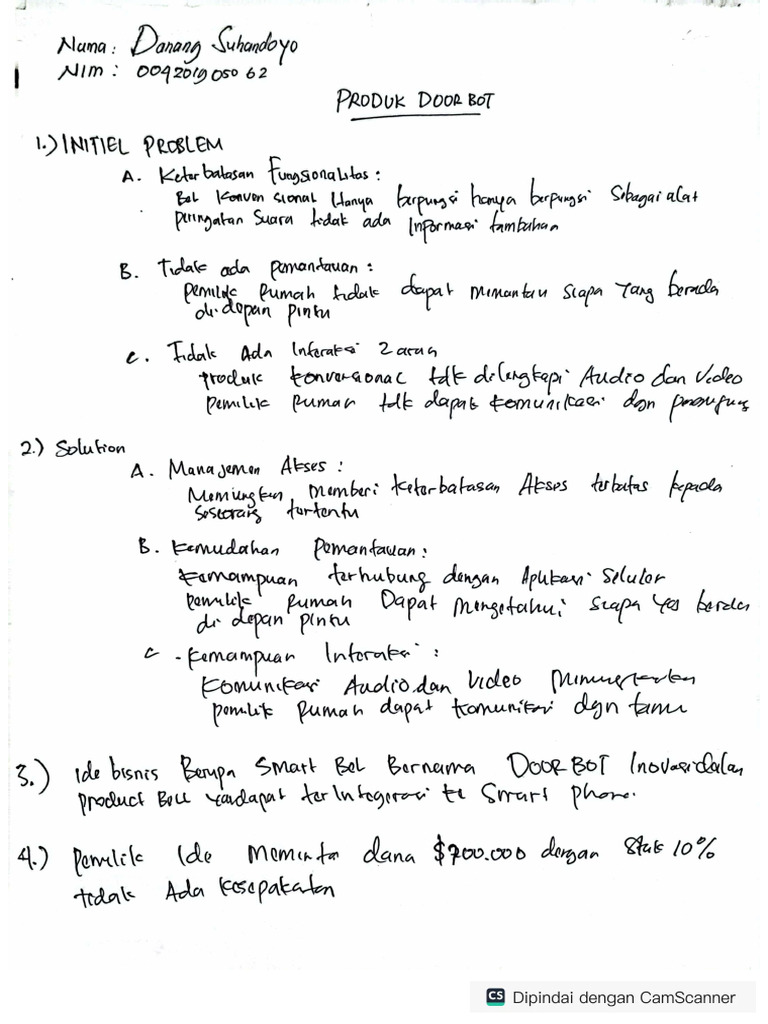 Nama : Danang Suhandoyo
Nim : 0092019050 62
PRODUK DOOR BOT
1.) INITIEL PROBLEM
A. Keterbatasan Fungsionalitas :
Bel Konvensional Hanya berpungsi hanya berpungsi Sebagai alat
peringatan Suara tidak ada Informasi tambahan
B. Tidak ada pemantauan :
pemilik Rumah tidak dapat memantau siapa Yang berada
di depan pintu
C. Tidak Ada Interaksi 2 arah
produk konvensional tdk dilengkapi Audio dan Video
pemilik Rumah tdk dapat komunikasi dgn
2.) Solution
A. Manajemen Akses :
memberi keterbatasan Akses terbatas kepada
Seseorang tertentu
B. Kemudahan Pemantauan :
Kemampuan terhubung dengan Aplikasi Selulor
pemilik Rumah Dapat Mengetahui siapa
di depan pintu
C - Kemampuan Interaksi :
Komunikasi Audio dan Video
pemilik Rumah dapat komunikasi dgn tamu
3.) Ide bisnis Berupa Smart Bel Bernama DOOR BOT Inovasi dalam
product Bell dapat terIntegerasi ke Smart phone.
4.) Pemilik Ide Meminta dana $700.000 dengan 10%
tidak Ada kesepakatan
CS Dipindai dengan CamScanner